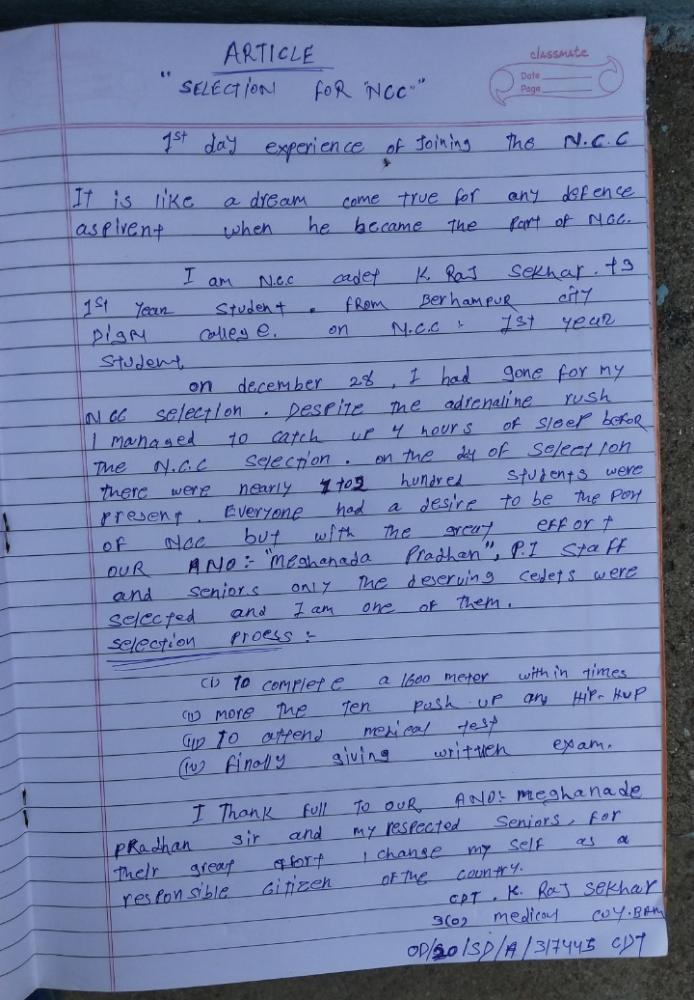 ARTICLE
"SELECTION FOR "NCC""
classmate
Date
Page
1st day experience of Joining the N.C.C
It is like a dream come true for any defence
aspirent when he became the part of NCC.
I am N.c.c cadet K. Raj Sekhar.
1st Year Student. FROM BERHAMPUR city
college. on N.C.C : 1st year
Student,
on december 28, I had gone for my
NCC selection. Despite the adrenaline rush
I managed to catch up 4 hours of sleep befor
the N.C.C selection. on the day of selection
there were nearly 1 to 2 hundred students were
present. Everyone had a desire to be the part
of NCC but with the great effort
OUR ANO:- "Meghanada Pradhan", P.I staff
and seniors only the deserving cedets were
selected and I am one of them.
selection proess :-
(i) To complete a 1600 meter within times
(ii) more the ten push up any
(iii) TO attend medical test
(iv) finally giving written exam.
I Thank full To OUR ANO:- meghanade
PRadhan sir and my respected Seniors, for
Their great efort I change my self as a
responsible citizen OF the country.
CDT. K. Raj Sekhar
medical coy. BAM
OD/20/SD/A/317445 CDT